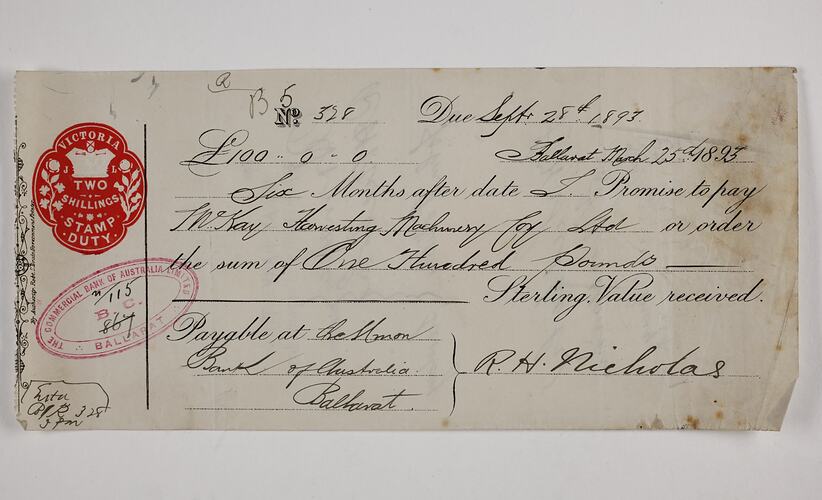 B 5
No. 328 Due Septr 28th 1893
£100 " 0 " 0. Ballarat March 25th 1893
Six Months after date I Promise to pay
McKay Harvesting Machinery Coy Ltd or order
the sum of One Hundred Pounds
Sterling, Value received.
Payable at the Union
Bank of Australia
Ballarat.
R. H. Nicholas
VICTORIA
J L
TWO
SHILLINGS
STAMP
DUTY
THE COMMERCIAL BANK OF AUSTRALIA LIMITED
115
B.C.
867
BALLARAT
328